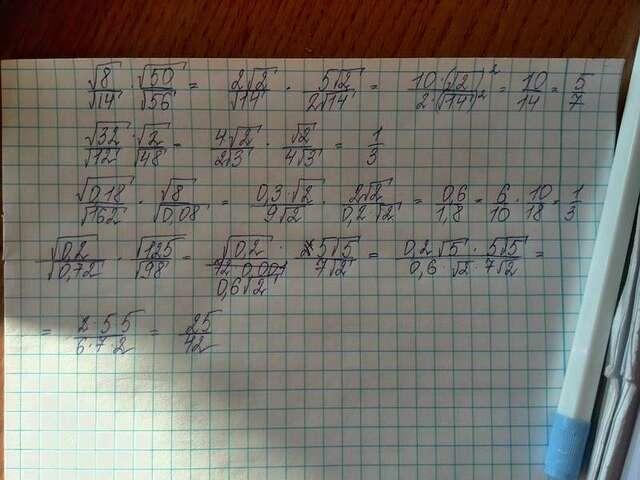 √8/√14 · √50/√56 = 2√2/√14 · 5√2/2√14 = 10·(√2)²/2·(√14)² = 10/14 = 5/7
√32/√12 · √2/√48 = 4√2/2√3 · √2/4√3 = 1/3
√0,18/√162 · √8/√0,08 = 0,3·√2/9√2 · 2√2/0,2·√2 = 0,6/1,8 = 6/10 · 10/18 = 1/3
√0,2/√0,72 · √125/√98 = √0,2/0,6√2 · 5√5/7√2 = 0,2√5·5√5/0,6·√2·7√2 =
= 2·5 5/6·7·2 = 25/42